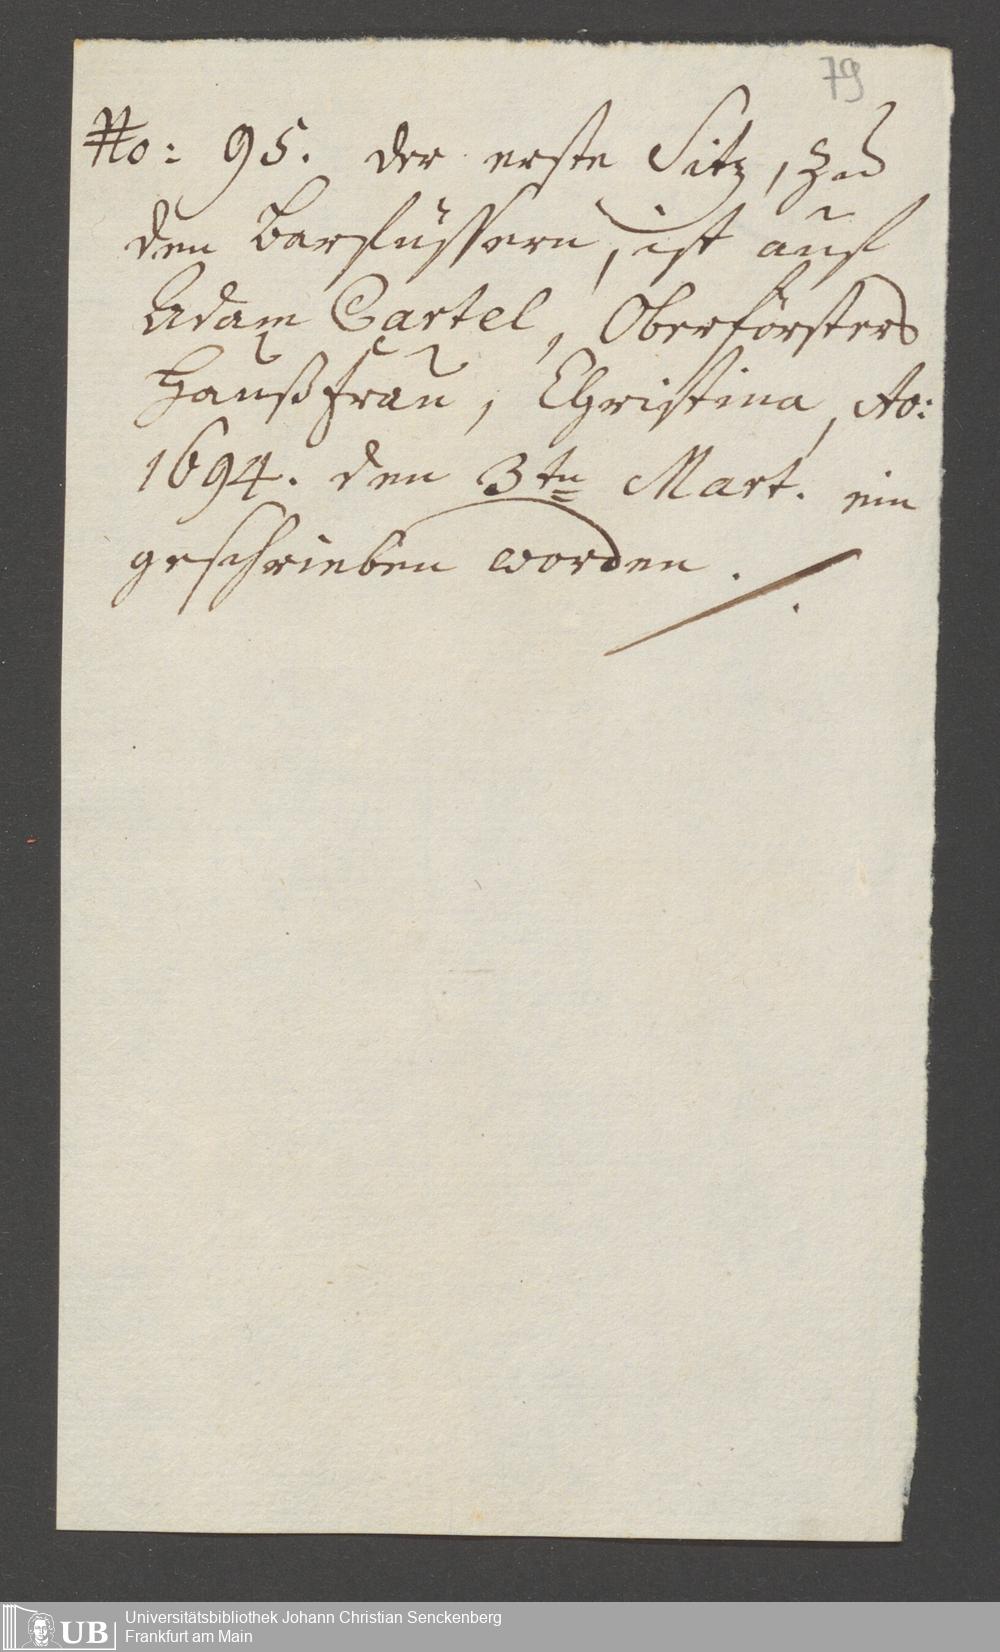 79
No: 95. der erste Sitz, zu
den Barfüssern, ist auf
Adam Cartel, Oberförsters
Haußfrau, Christina, Ao:
1694. den 3tn Mart. ein
geschrieben worden ./.
Universitätsbibliothek Johann Christian Senckenberg
Frankfurt am Main
UB